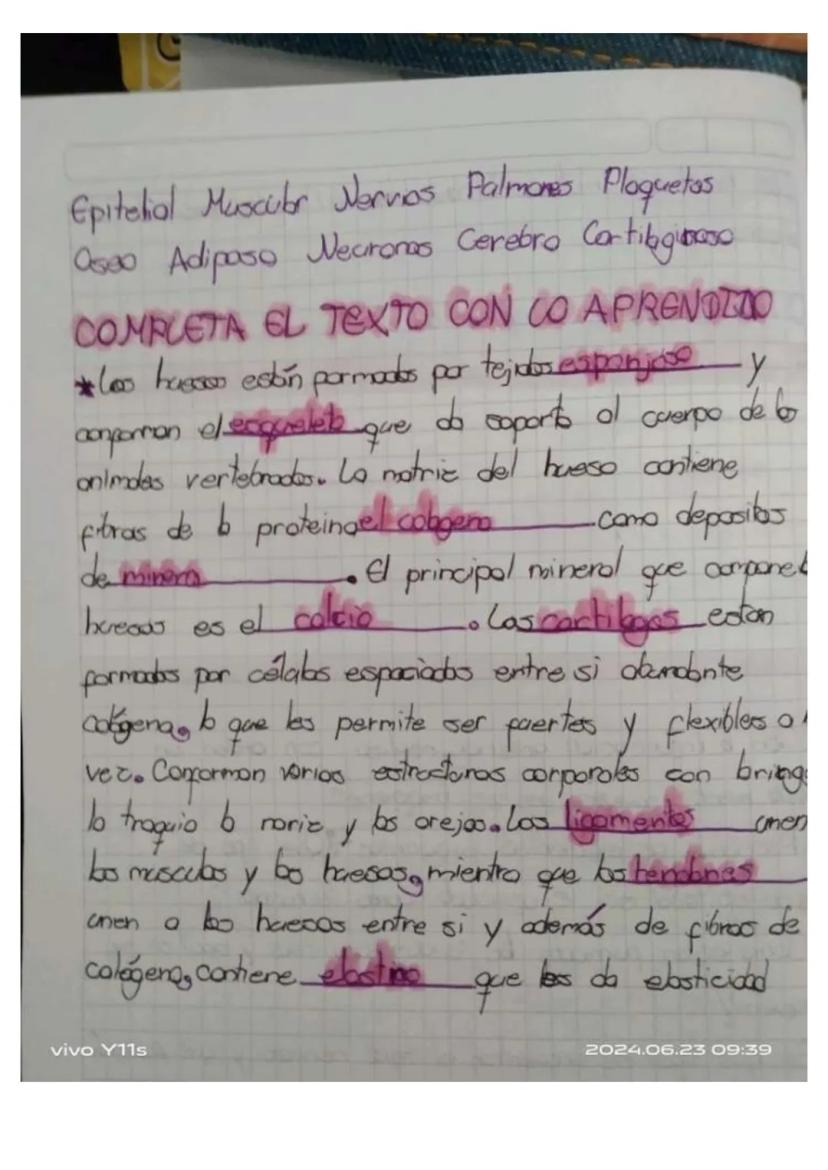 Epitelial Muscular Nervios Palmones Plaquetas
Oseo Adiposo Necuronas Cerebro Cartilaginoso
COMPLETA EL TEXTO CON LO APRENDIZO
*Los huesos están formados por tejidos esponjoso y
conforman el esqueleto que da soporte al cuerpo de los
animales vertebrados. La matriz del hueso contiene
fibras de la proteina el colageno como depositos
de minera . El principal mineral que compone l
huesos es el calcio . Los cartilagos estan
formados por célalas espaciadas entre si abundante
colágena, lo que les permite ser fuertes y flexibles a
vez. Conforman varias estructuras corporales con bring
la traquia la nariz y las orejas. Los ligamentos unen
los musculos y los huesos, mientra que los tendones
unen a los huesos entre si y además de fibras de
colágeno, contiene elastina que les da elasticidad
vivo Y11s
2024.06.23 09:39